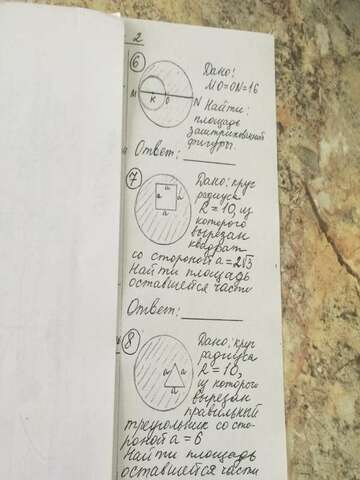 2
6
Дано:
MO=ON=16
M
K
O
N Найти:
площадь
заштрихованной
фигуры.
Ответ:
7
Дано: круг
радиуса
R=10, из
которого
вырезан
квадрат
a
a
a
a
со стороной a=2√3
Найти площадь
оставшейся части
Ответ:
8
Дано: круг
радиуса
R=10,
из которого
вырезан
правильный
a
a
a
треугольник со сто-
роной a=6
Найти площадь
оставшейся части